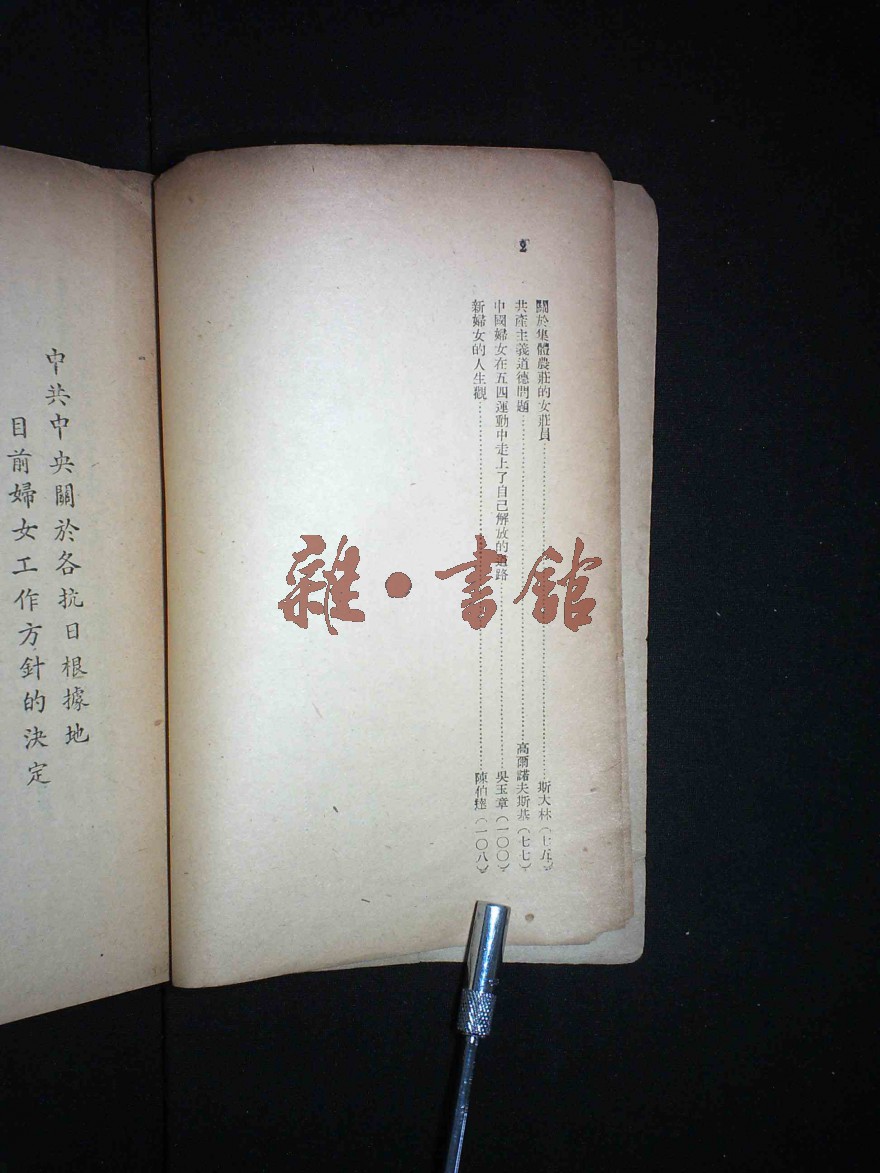 2
關於集體農莊的女莊員……斯大林(七五)
共產主義道德問題……高爾諾夫斯基(七七)
中國婦女在五四運動中走上了自己解放的道路……吳玉章(一〇〇)
新婦女的人生觀……陳伯達(一〇八)
中共中央關於各抗日根據地
目前婦女工作方針的決定
雜·書館